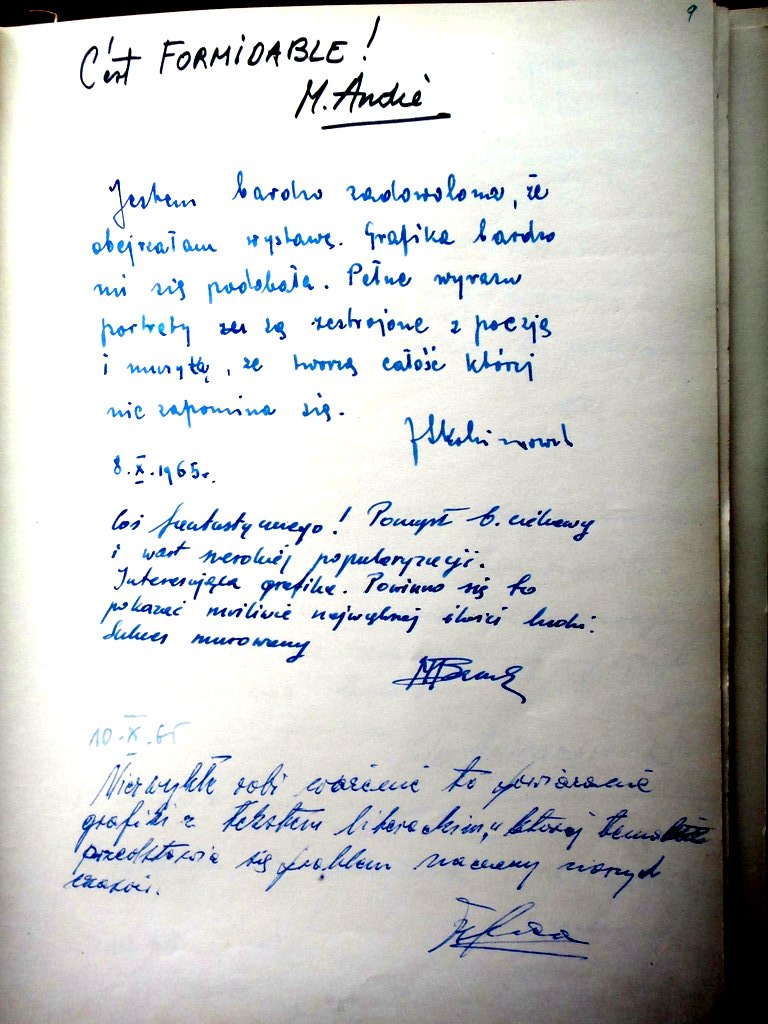 9
C'est FORMIDABLE!
M. André
Jestem bardzo zadowolona, że
obejrzałam wystawę. Grafika bardzo
mi się podobała. Pełne wyrazu
portrety są zestrojone z poezją
i muzyką, że tworzą całość której
nie zapomina się.
8.X.1965r.
Coś fantastycznego! Pomysł b. ciekawy
i wart szerokiej popularyzacji.
Interesująca grafika. Powinno się to
pokazać możliwie największej ilości ludzi.
Sukces murowany
10.X.65
Niezwykłe robi wrażenie to powiązanie
grafiki z tekstem literackim, której
przedstawia się problem naszych
czasów.